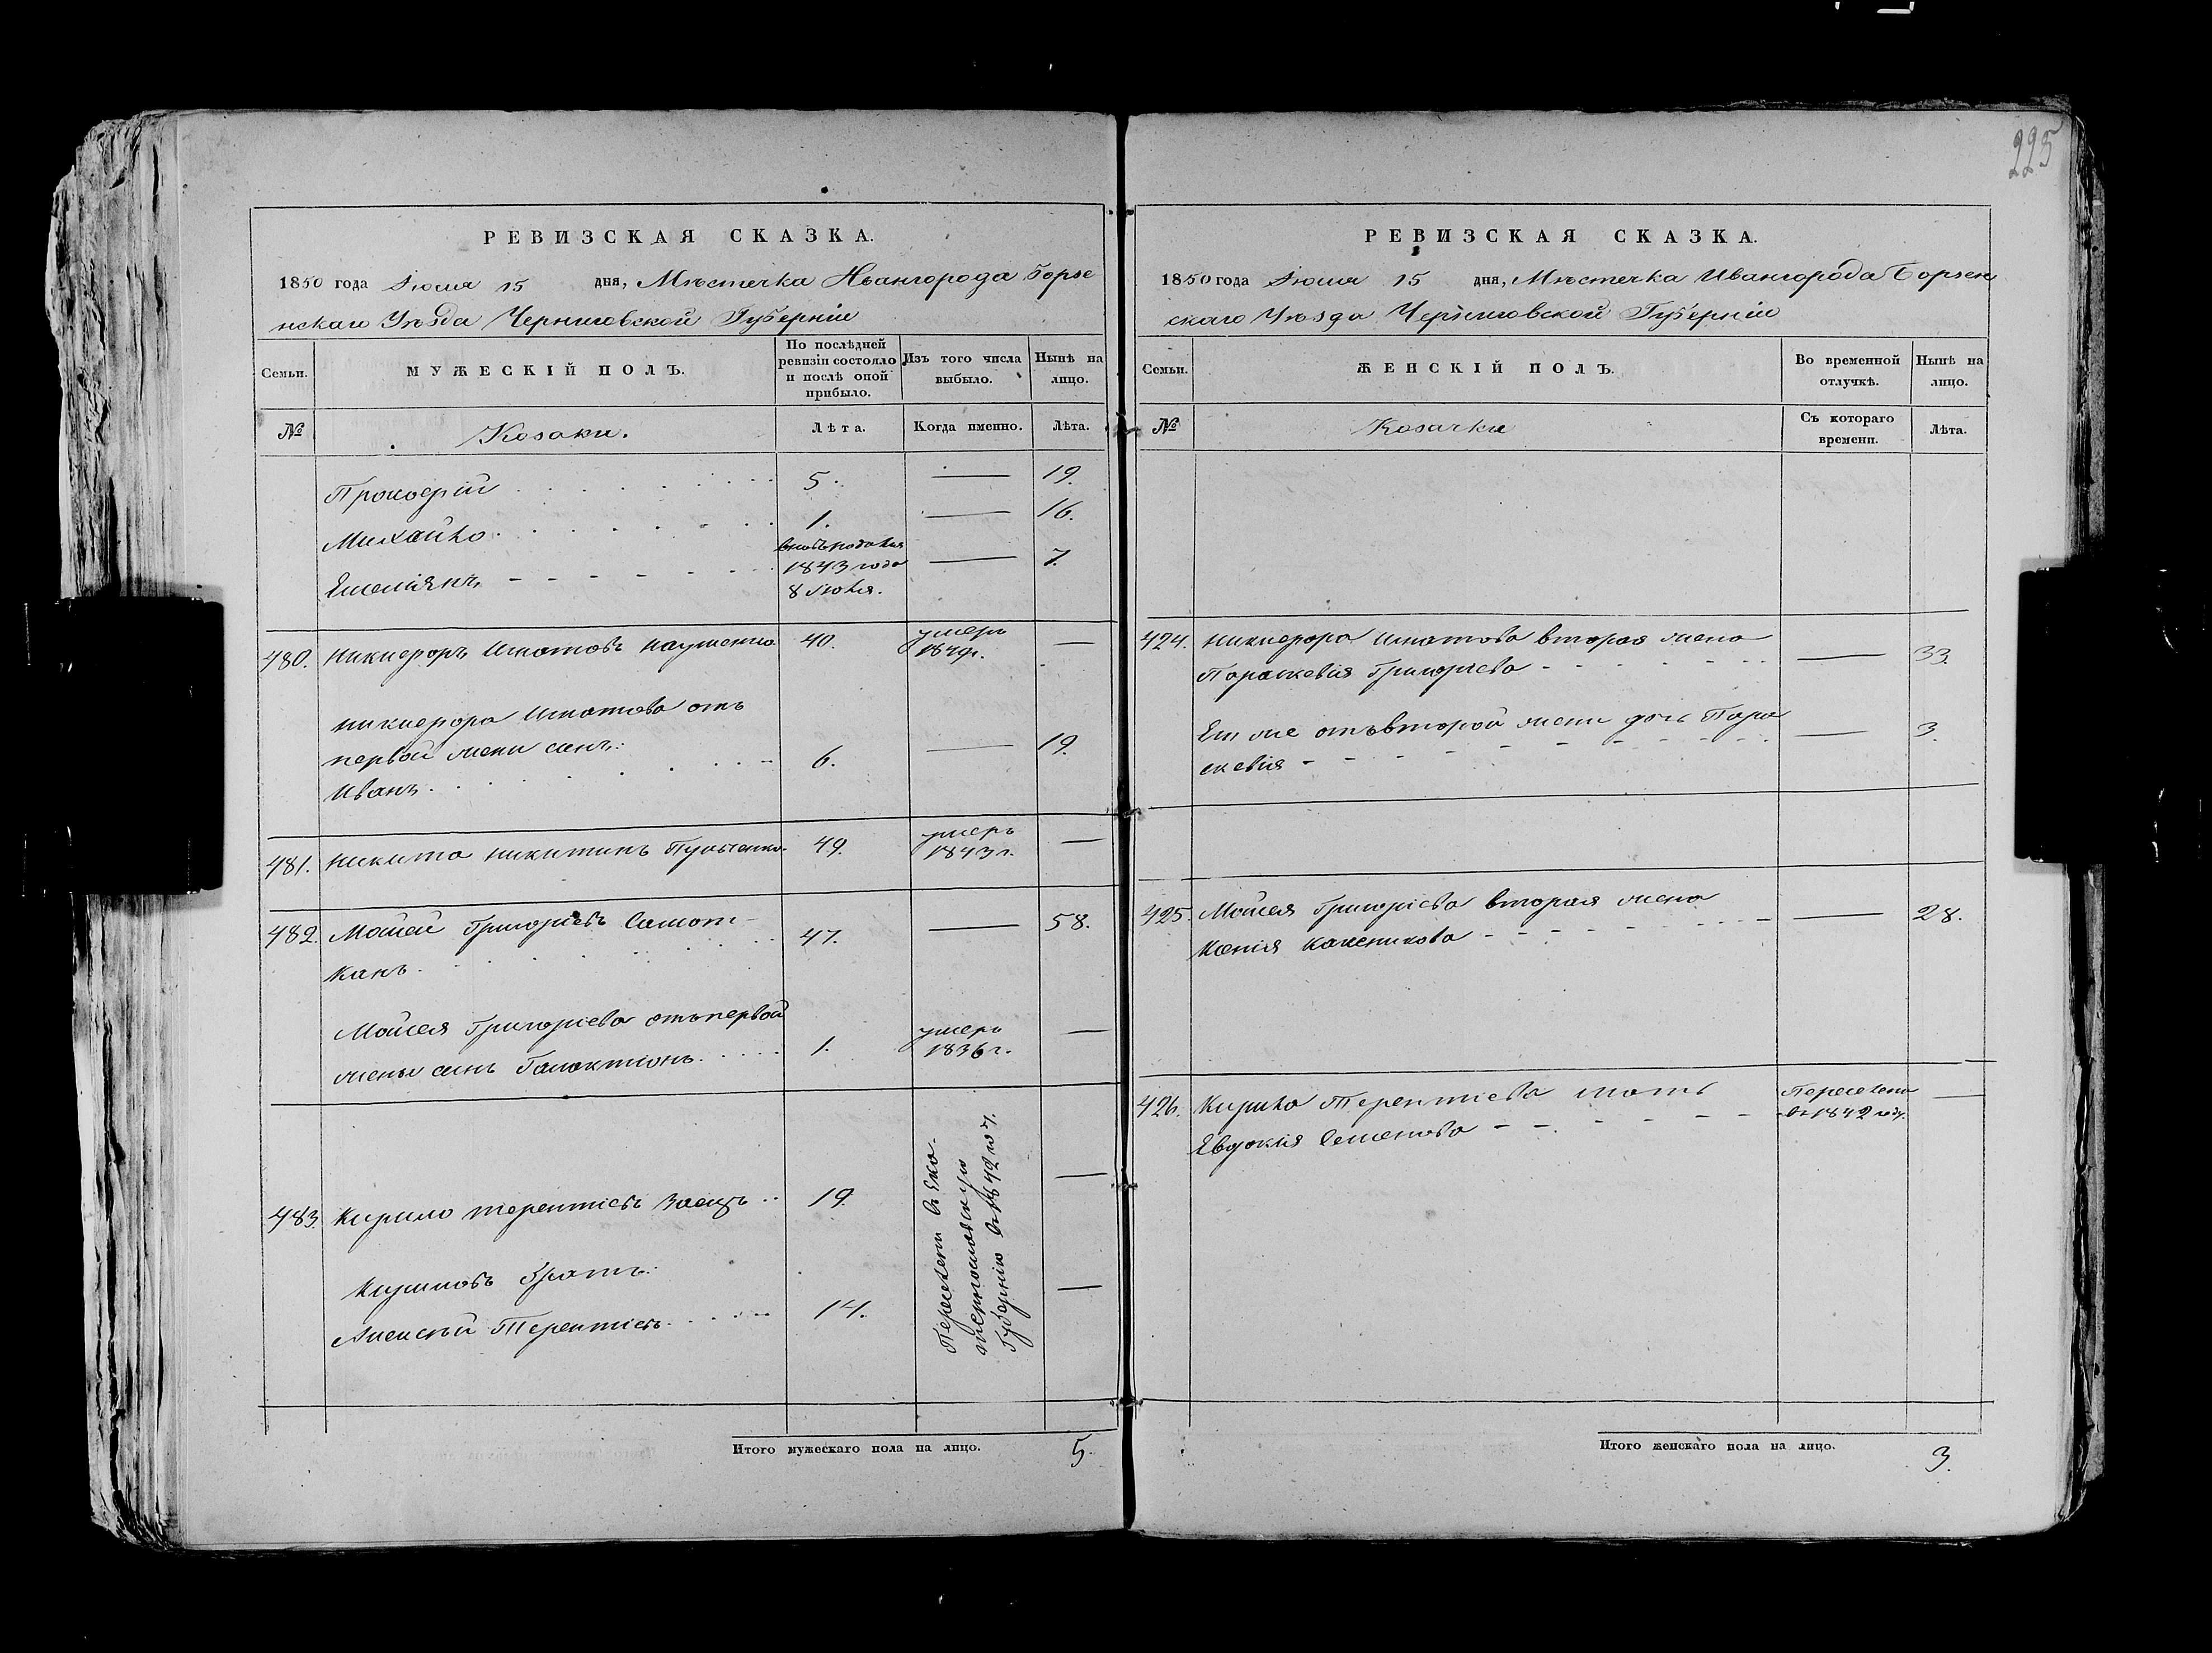 225
РЕВИЗСКАЯ СКАЗКА.
1850 года Июля 15 дня, Мѣстечка Ивангорода Борзе
нскаго Уѣзда Черниговской Губерніи
Семьи.
МУЖЕСКІЙ ПОЛЪ.
По послѣдней
ревизіи состояло
и послѣ оной
прибыло.
Изъ того числа
выбыло.
Нынѣ на
лицо.
№
Козаки.
Лѣта.
Когда именно.
Лѣта.
Прокофій 5. — 19.
Михайло 1. — 16.
Емеліянъ
1843 года
8 Июля. — 7.
480. Никифоръ Игнатовъ 40. умеръ
1849г. —
Никифора Игнатова отъ
первой жени синъ:
Иванъ 6. — 19.
481. Никита Никитинъ 49. умеръ
1843 г. —
482. Мойсей Григоріевъ Самот-
канъ 47. — 58.
Мойсея Григоріева отъ первой
жены синъ Галактіонъ 1. умеръ
1836 г. —
483. Кирило Терентіевъ Заецъ 19. —
Кириловъ братъ:
Алексѣй Терентіевъ 14. —
Переселени въ Ека-
теринославскую
Губернію въ 1842 году.
Итого мужескаго пола на лицо. 5.
РЕВИЗСКАЯ СКАЗКА.
1850 года Июля 15 дня, Мѣстечка Ивангорода Борзен
скаго Уѣзда Черниговской Губерніи
Семьи.
ЖЕНСКІЙ ПОЛЪ.
Во временной
отлучкѣ.
Нынѣ на
лицо.
№
Козачки
Съ котораго
времени.
Лѣта.
424. Никифора Игнатова вторая жена
Параскевія Григорьева — 33.
Ею же отъ второй жени дочь Пара
скевія — 3.
425. Мойсея Григоріева вторая жена
Ксенія — 28.
426. Кирила Терентіева мать
Евдокія Семенова
Переселена
въ 1842 году. —
Итого женскаго пола на лицо. 3.